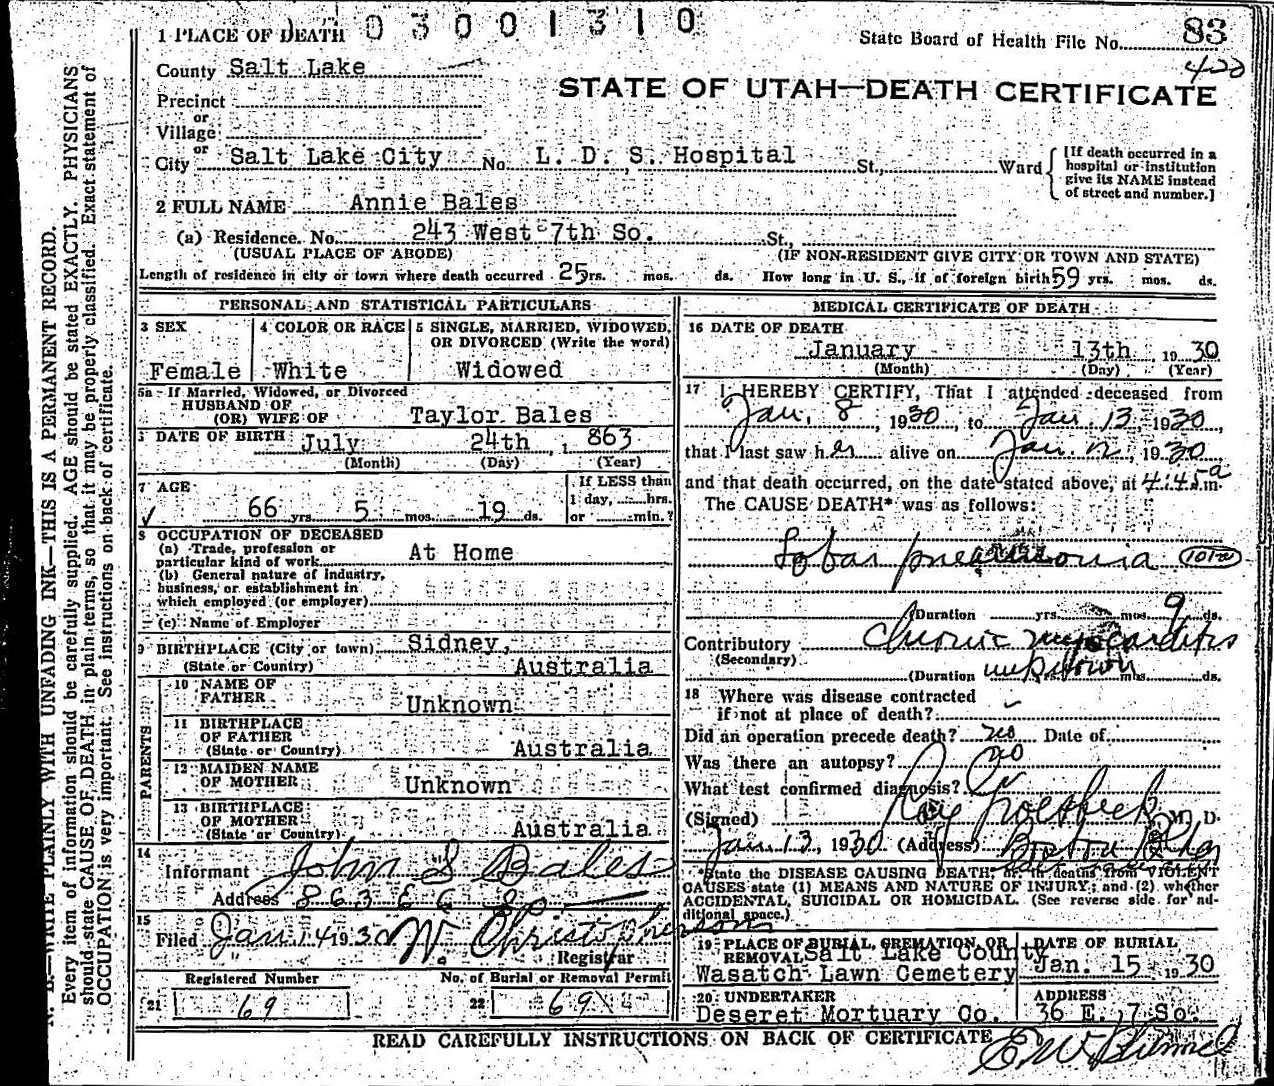 03001310
1 PLACE OF DEATH
State Board of Health File No. 83
400
County Salt Lake
STATE OF UTAH—DEATH CERTIFICATE
Precinct
or
Village
or
City Salt Lake City No. L. D. S. Hospital St., Ward
[If death occurred in a hospital or institution give its NAME instead of street and number.]
2 FULL NAME Annie Bales
(a) Residence. No. 243 West 7th So. St.,
(USUAL PLACE OF ABODE) (IF NON-RESIDENT GIVE CITY OR TOWN AND STATE)
Length of residence in city or town where death occurred 25 yrs. mos. ds. How long in U. S., if of foreign birth 59 yrs. mos. ds.
PERSONAL AND STATISTICAL PARTICULARS
3 SEX
Female
4 COLOR OR RACE
White
5 SINGLE, MARRIED, WIDOWED, OR DIVORCED (Write the word)
Widowed
5a If Married, Widowed, or Divorced
HUSBAND OF
(OR) WIFE OF Taylor Bales
DATE OF BIRTH July 24th, 1863
(Month) (Day) (Year)
7 AGE
66 yrs. 5 mos. 19 ds.
If LESS than
1 day, hrs.
or min.?
8 OCCUPATION OF DECEASED
(a) Trade, profession or
particular kind of work At Home
(b) General nature of industry,
business, or establishment in
which employed (or employer)
(c) Name of Employer
9 BIRTHPLACE (City or town) Sidney,
(State or Country) Australia
PARENTS
10 NAME OF
FATHER Unknown
11 BIRTHPLACE
OF FATHER
(State or Country) Australia
12 MAIDEN NAME
OF MOTHER Unknown
13 BIRTHPLACE
OF MOTHER
(State or Country) Australia
14
Informant John S Bales
Address 863 E 6 So
15
Filed Jan 14 1930 W. Christopherson
Registrar
Registered Number
21 69
No. of Burial or Removal Permit
22 69
MEDICAL CERTIFICATE OF DEATH
16 DATE OF DEATH
January 13th 1930
(Month) (Day) (Year)
17 I HEREBY CERTIFY, That I attended deceased from
Jan. 8, 1930, to Jan. 13, 1930,
that I last saw her alive on Jan. 12, 1930
and that death occurred, on the date stated above, at 4:45 a m.
The CAUSE DEATH* was as follows:
Lobar pneumonia
(Duration yrs. mos. 9 ds.
Contributory Chronic myocarditis
(Secondary)
(Duration unknown yrs. mos. ds.
18 Where was disease contracted
if not at place of death?
Did an operation precede death? no Date of
Was there an autopsy? no
What test confirmed diagnosis?
(Signed) Ray Groesbeck M. D.
Jan 13, 1930 (Address) Boston Bldg
*State the DISEASE CAUSING DEATH, or in deaths from VIOLENT
CAUSES state (1) MEANS AND NATURE OF INJURY; and (2) whether
ACCIDENTAL, SUICIDAL OR HOMICIDAL. (See reverse side for ad-
ditional space.)
19 PLACE OF BURIAL, CREMATION, OR
REMOVAL Salt Lake County
Wasatch Lawn Cemetery
DATE OF BURIAL
Jan. 15 1930
20 UNDERTAKER
Deseret Mortuary Co.
ADDRESS
36 E. 7 So.
READ CAREFULLY INSTRUCTIONS ON BACK OF CERTIFICATE
N. B.—WRITE PLAINLY WITH UNFADING INK—THIS IS A PERMANENT RECORD.
Every item of information should be carefully supplied. AGE should be stated EXACTLY. PHYSICIANS
should state CAUSE OF DEATH in plain terms, so that it may be properly classified. Exact statement of
OCCUPATION is very important. See instructions on back of certificate.